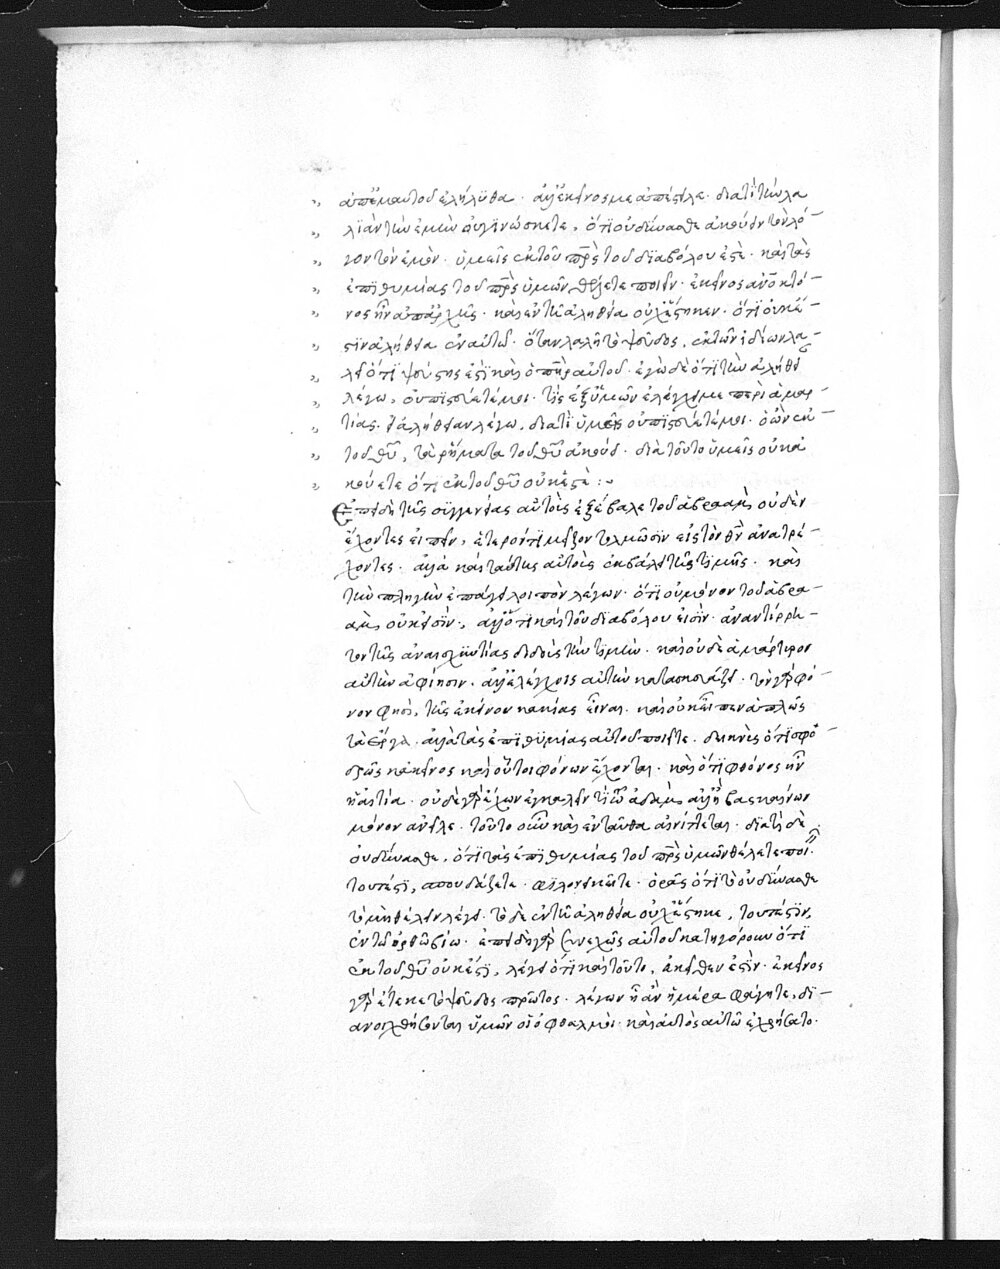 ἀπ' ἐμαυτοῦ ἐλήλυθα · ἀλλ' ἐκεῖνός με ἀπέστειλε · διατί τὴν λα
λιὰν τὴν ἐμὴν οὐ γινώσκετε, ὅτι οὐ δύνασθε ἀκούειν τὸν λό–
γον τὸν ἐμόν · ὑμεῖς ἐκ τοῦ πρς τοῦ διαβόλου ἐστέ · καὶ τὰς
ἐπιθυμίας τοῦ πρς ὑμῶν θέλετε ποιεῖν · ἐκεῖνος ἀνοκτό–
νος ἦν ἀπαρχῆς · καὶ ἐν τῇ ἀληθείᾳ οὐχ ἕστηκεν · ὅτι οὐκ ἔ–
στιν ἀλήθεια ἐν αὐτῷ · ὅταν λαλῇ τὸ ψεῦδος, ἐκ τῶν ἰδίων λα–
λεῖ ὅτι ψεύστης ἐστὶ καὶ ὁ πηρ αὐτοῦ · ἐγὼ δὲ ὅτι τὴν ἀλήθει
λέγω, οὐ πιστεύετέ μοι · τίς ἐξ ὑμῶν ἐλέγχει με περὶ ἁμαρ–
τίας · εἰ ἀλήθειαν λέγω, διατί ὑμεῖς οὐ πιστεύετέ μοι · ὁ ὢν ἐκ–
τοῦ θυ, τὰ ῥήματα τοῦ θυ ἀκούει · διὰ τοῦτο ὑμεῖς οὐκ ἀ
κούετε ὅτι ἐκ τοῦ θυ οὐκ ἐστέ :~
Ἐπειδὴ τῆς συγγενείας αὐτοὺς ἐξέβαλε τοῦ ἀβραὰμ, οὐδὲν
ἔχοντες εἰπεῖν, ἕτερόν τι μεῖζον τολμῶσιν εἰς τὸν θν ἀνατρέ–
χοντες · ἀλλὰ καὶ ταύτης αὐτοὺς ἐκβάλλει τῆς τιμῆς · καὶ
τὴν πληγὴν ἐπάγει λοιπὸν λέγων · ὅτι οὐ μόνον τοῦ ἀβρα–
ὰμ, οὐκ εἰσὶν, ἀλλ' ὅτι καὶ τοῦ διαβόλου εἰσὶν · ἀναντίρρη–
τον τῆς ἀναισχυντίας διδοὺς τὴν τιμὴν · καὶ οὐδὲ ἀμάρτυρον
αὐτὴν ἀφίησιν · ἀλλ' ἐλέγχοις αὐτὴν κατασκευάζει · τὸν γὰρ φό–
νον φησὶ, τῆς ἐκείνου κακίας εἶναι · καὶ οὐκ εἶπεν ἁπλῶς
τὰ ἔργα · ἀλλὰ τὰς ἐπιθυμίας αὐτοῦ ποιεῖτε · δεικνὺς ὅτι σφό–
δρῶς κἀκεῖνος καὶ οὗτοι φόνων ἔχονται · καὶ ὅτι φθόνος ἦν
ἡ αἰτία · οὐδὲ γὰρ ἔχων ἐγκαλεῖν τι τῷ ἀδὰμ, ἀλλ' ἢ βασκαίνων
μόνον ἀνεῖλε · τοῦτο οὖν καὶ ἐνταῦθα αἰνίττεται · διατί δὲ
οὐ δύνασθε, ὅτι τὰς ἐπιθυμίας τοῦ πρς ὑμῶν θέλετε ποι
τουτέστι, σπουδάζετε · φιλονεικεῖτε · ὁρᾷς ὅτι τὸ οὐ δύνασθε
τὸ μὴ θέλειν λέγει · τὸ δὲ ἐν τῇ ἀληθείᾳ οὐχ ἕστηκε, τουτέστιν,
ἐν τῷ ὀρθῷ βίῳ · ἐπειδὴ γὰρ συνεχῶς αὐτοῦ κατηγόρουν ὅτι
ἐκ τοῦ θυ οὐκ ἔστι, λέγει ὅτι καὶ τοῦτο, ἐκεῖθεν ἐστὶν · ἐκεῖνος
γὰρ ἔτεκε τὸ ψεῦδος πρῶτος · λέγων ᾗ ἂν ἡμέρᾳ φάγητε, δι–
ανοιχθήσονται ὑμῶν οἱ ὀφθαλμοὶ · καὶ αὐτὸς αὐτῷ ἐχρήσατο ·